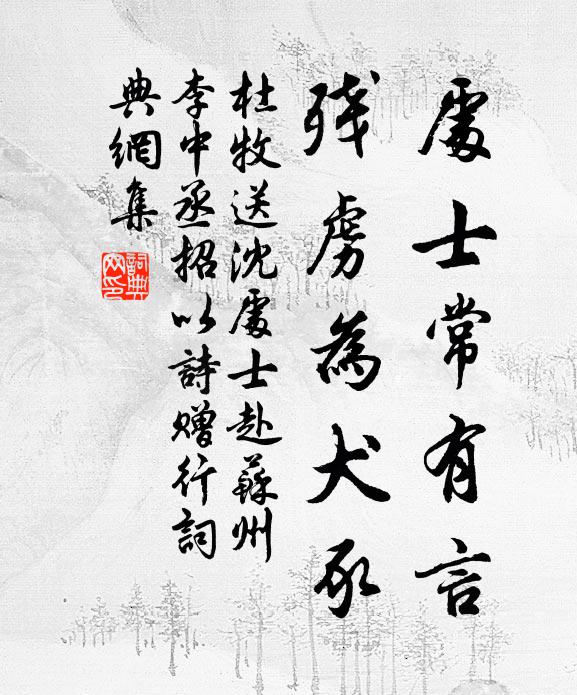 處士常有言
殘虜為犬豕
杜牧送沈處士赴蘇州
李中丞招以詩贈行詞
典網集
詞典網印